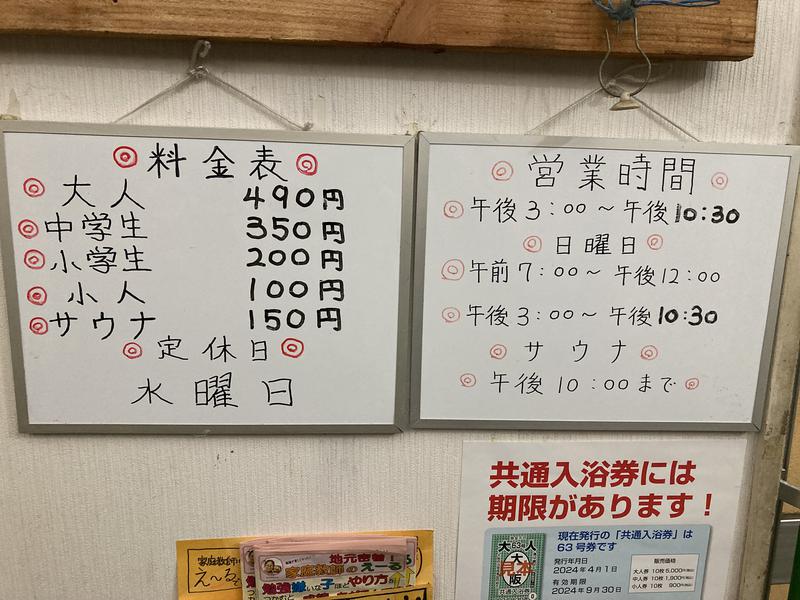 ◎料金表◎
◎大人 490円
◎中学生 350円
◎小学生 200円
◎小人 100円
◎サウナ 150円
◎定休日◎
水曜日
◎営業時間◎
◎午後3:00～午後10:30
◎日曜日◎
◎午前7:00～午後12:00
◎午後3:00～午後10:30
◎サウナ◎
◎午後10:00まで◎
共通入浴券には
期限があります！
現在発行の「共通入浴券」は
63号券です
発行年月日
2024年4月1日
有効期限
2024年9月30日
販売価格
大人券 10枚5,000円(税込)
中人券 10枚1,900円(税込)
小人券 10枚 900円(税込)
63号
大人
大阪
見本
共通入浴券
家庭教師
え～る
地元密着！
家庭教師のえーる
勉強嫌いな子ほど やり方